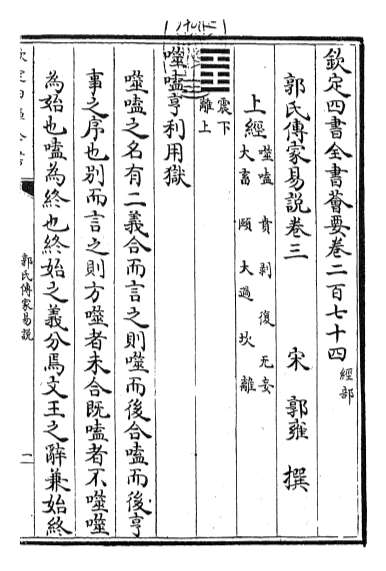 欽定四庫全書薈要卷二百七十四 經部
郭氏傳家易說卷三
宋 郭雍 撰
上經
噬嗑 賁 剥 復 无妄
大畜 頤 大過 坎 離
震下
離上
噬嗑亨利用獄
噬嗑之名有二義合而言之則噬而後合嗑而後亨
事之序也别而言之則方噬者未合既嗑者不噬噬
為始也嗑為終也終始之義分焉文王之辭兼始終
郭氏傳家易說
一